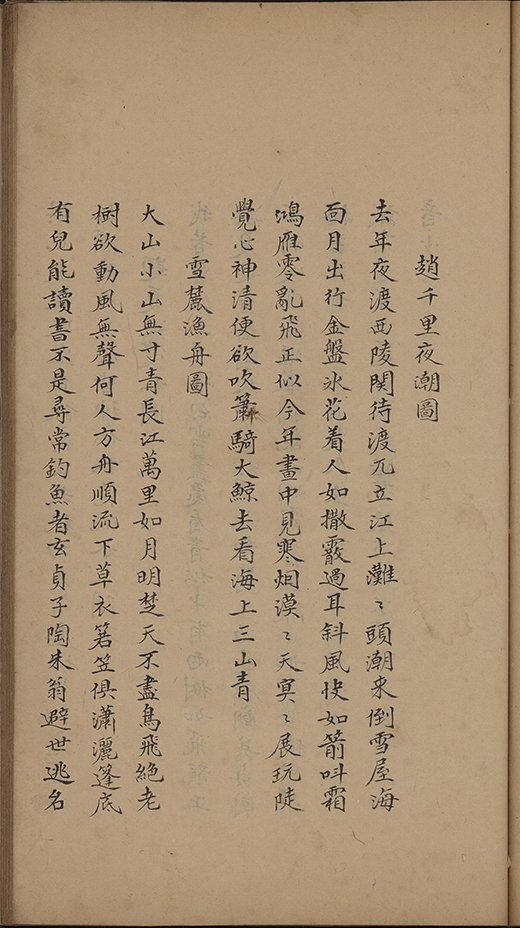 趙千里夜潮圖
去年夜渡西陵関待渡兀立江上灘〻頭潮来倒雪屋海
面月出行金盤冰花着人如撒霰過耳斜風快如箭叫霜
鴻雁零亂飛正似今年畫中見寒烟漠〻天㝠〻展玩陡
覺心神清便欲吹簫騎大鯨去看海上三山青
雪麓漁舟圖
大山小山無寸青長江萬里如月明楚天不盡鳥飛絶老
樹欲動風無聲何人方舟順流下草衣篛笠俱瀟灑篷底
有兒能讀書不是尋常釣魚者玄貞子陶朱翁避世逃名